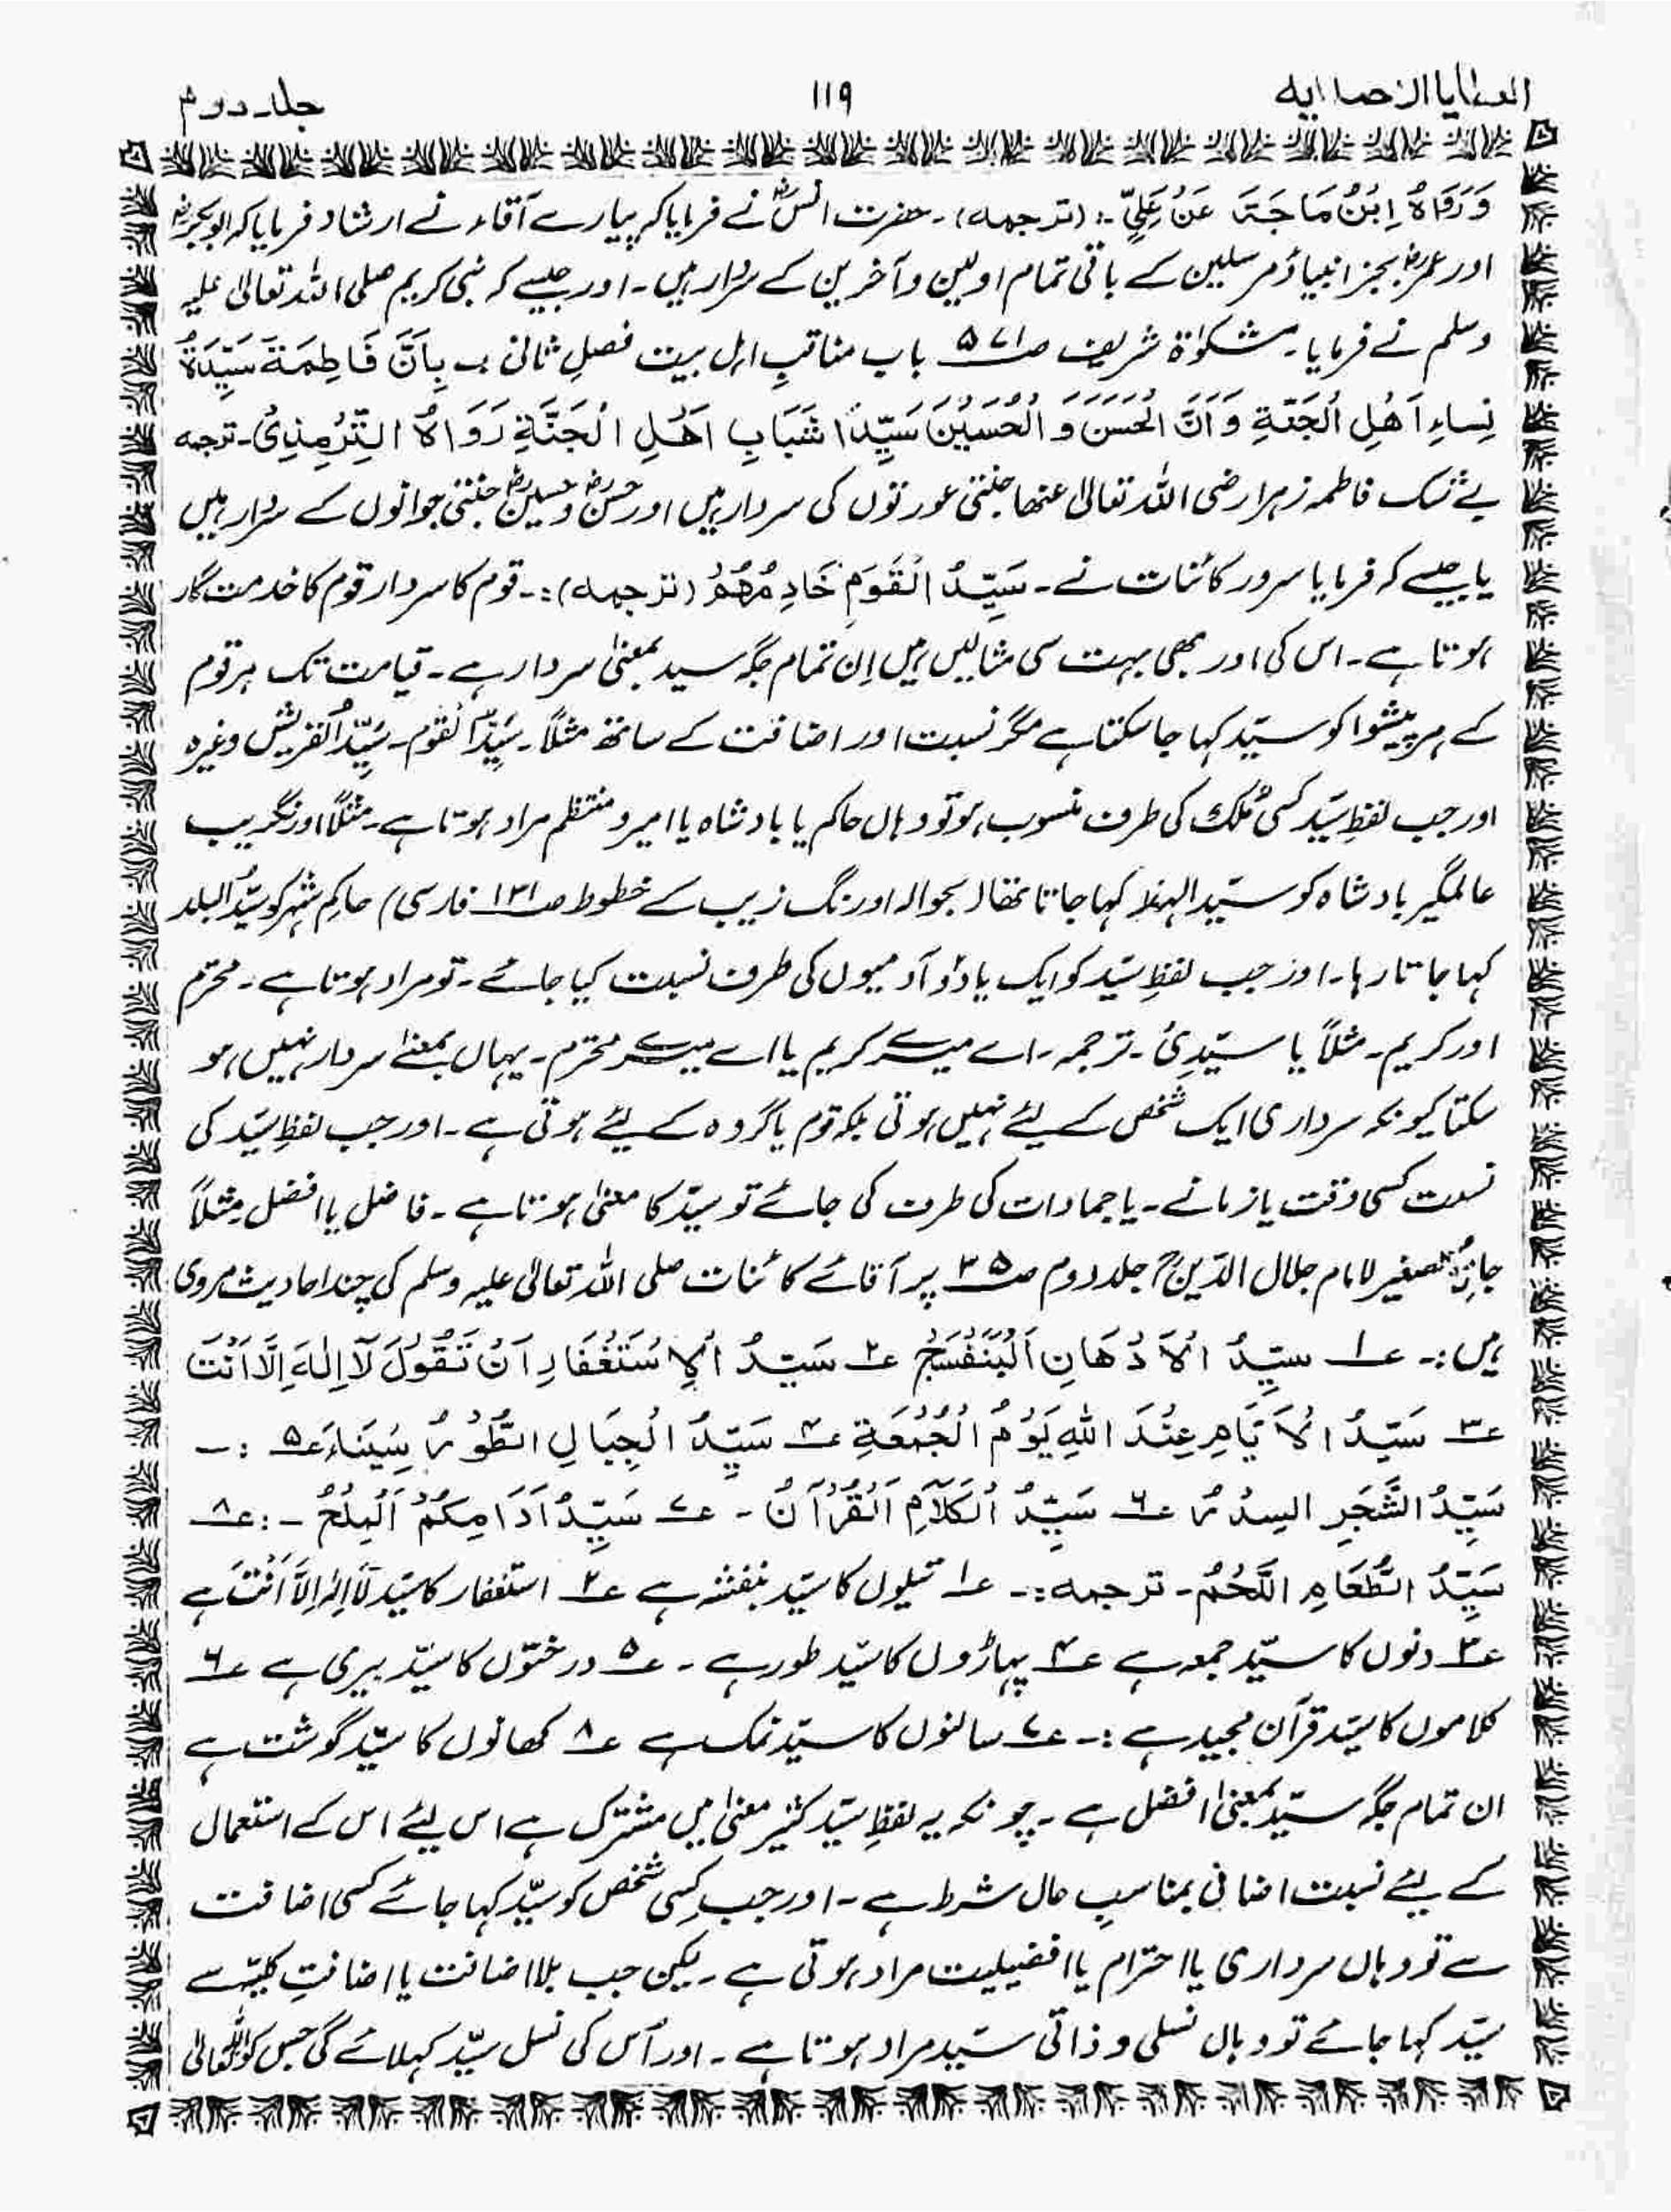 العطایا الاحمدیہ ۱۱۹ جلد دوم
وَرَوَاہُ اِبْنُ مَاجَۃَ عَنْ عَلِیٍّ :۔ (ترجمہ)۔ حضرت انسؓ نے فرمایا کہ پیارے آقاء نے ارشاد فرمایا کہ ابوبکرؓ
اور عمرؓ بجز انبیاؤ مرسلین کے باقی تمام اولین وآخرین کے سردار ہیں۔ اور جیسے کہ نبی کریم صلی اللہ تعالیٰ علیہ
وسلم نے فرمایا۔ مشکوٰۃ شریف صـ۵۷۱ باب مناقبِ اہل بیت فصلِ ثانی :۔ بِاَنَّ فَاطِمَۃَ سَیِّدَۃُ
نِسَاءِ اَھْلِ الْجَنَّۃِ وَ اَنَّ الْحَسَنَ وَ الْحُسَیْنَ سَیِّدَا شَبَابِ اَھْلِ الْجَنَّۃِ رَوَاہُ التِّرْمِذِیْ۔ ترجمہ
بے شک فاطمہ زہرا رضی اللہ تعالیٰ عنھا جنتی عورتوں کی سردار ہیں اور حسنؓ و حسینؓ جنتی جوانوں کے سردار ہیں
یا جیسے کہ فرمایا سرور کائنات نے۔ سَیِّدُ الْقَوْمِ خَادِمُھُمْ (ترجمہ):۔ قوم کا سردار قوم کا خدمت گار
ہوتا ہے۔ اس کی اور بھی بہت سی مثالیں ہیں اِن تمام جگہ سید بمعنیٰ سردار ہے۔ قیامت تک ہر قوم
کے ہر پیشوا کو سیّد کہا جا سکتا ہے مگر نسبت اور اضافت کے ساتھ مثلاً۔ سَیِّدُ القوم۔ سَیِّدُ القریش وغیرہ
اور جب لفظِ سیّد کسی مُلک کی طرف منسوب ہو تو وہاں حاکم یا بادشاہ یا امیر و منتظم مراد ہوتا ہے۔ مثلاً اورنگزیب
عالمگیر بادشاہ کو سیّد الہند کہا جاتا تھا (بحوالہ اورنگ زیب کے خطوط صـ۱۳۱ فارسی) حاکِم شہر کو سیّدُ البلد
کہا جاتا رہا۔ اور جب لفظِ سیّد کو ایک یا دو آدمیوں کی طرف نسبت کیا جائے۔ تو مراد ہوتا ہے۔ محترم
اور کریم۔ مثلاً یا سیّدِیْ۔ ترجمہ۔ اے میرے کریم یا اے میرے محترم۔ یہاں بمعنے سردار نہیں ہو
سکتا کیونکہ سرداری ایک شخص کے لیے نہیں ہوتی بلکہ قوم یا گروہ کے لئے ہوتی ہے۔ اور جب لفظِ سیّد کی
نسبت کسی وقت یا زمانے۔ یا جمادات کی طرف کی جائے تو سیّد کا معنیٰ ہوتا ہے۔ فاضل یا افضل مثلاً
جامع الصغیر لامام جلال الدّین جلد دوم صـ۳۵ پر آقائے کائنات صلی اللہ تعالیٰ علیہ وسلم کی چند احادیث مروی
ہیں :۔ ۱؎ سیِّدُ الْاَدْھَانِ اَلْبَنَفْسَجُ ۲؎ سَیِّدُ الْاِسْتَغْفَارِ اَنْ تَقُوْلَ لَآ اِلٰہَ اِلَّا اَنْتَ
۳؎ سَیِّدُ الْاَیَّامِ عِنْدَ اللہِ یَوْمُ الْجُمُعَۃِ ۴؎ سَیِّدُ الْجِبَالِ الطُّوْرُ سِیْنَاءَ ۵؎ :۔
سَیِّدُ الشَّجَرِ السِدْرُ ۶؎ سَیِّدُ الْکَلَامِ اَلْقُرْآنُ۔ ۷؎ سَیِّدُ اَدَامِکُمْ اَلْمِلْحُ ۔: ۸؎
سَیِّدُ الطَّعَامِ اللَّحْمُ۔ ترجمہ:۔ ۱؎ تیلوں کا سیّد بنفشہ ہے ۲؎ استغفار کا سیّد لَآ اِلٰہَ اِلَّا اَنْتَ ہے
۳؎ دنوں کا سیّد جمعہ ہے ۴؎ پہاڑوں کا سیّد طور ہے۔ ۵؎ درختوں کا سیّد بیری ہے ۶؎
کلاموں کا سیّد قرآن مجید ہے :۔ ۷؎ سالنوں کا سیّد نمک ہے ۸؎ کھانوں کا سیّد گوشت ہے
ان تمام جگہ سیّد بمعنیٰ افضل ہے۔ چونکہ یہ لفظِ سیّد کثیر معنیٰ میں مشترک ہے اس لیئے اس کے استعمال
کے لیئے نسبت اضافی بمناسبِ حال شرط ہے۔ اور جب کِسی شخص کو سیّد کہا جائے کسی اضافت
سے تو وہاں سرداری یا احترام یا افضیلیت مراد ہوتی ہے۔ لیکن جب بلا اضافت یا اضافتِ کلیّہ سے
سیّد کہا جائے تو وہاں نسلی و ذاتی سیّد مراد ہوتا ہے۔ اور اُس کی نسل سیّد کہلائے گی جس کو اللہ تعالیٰ